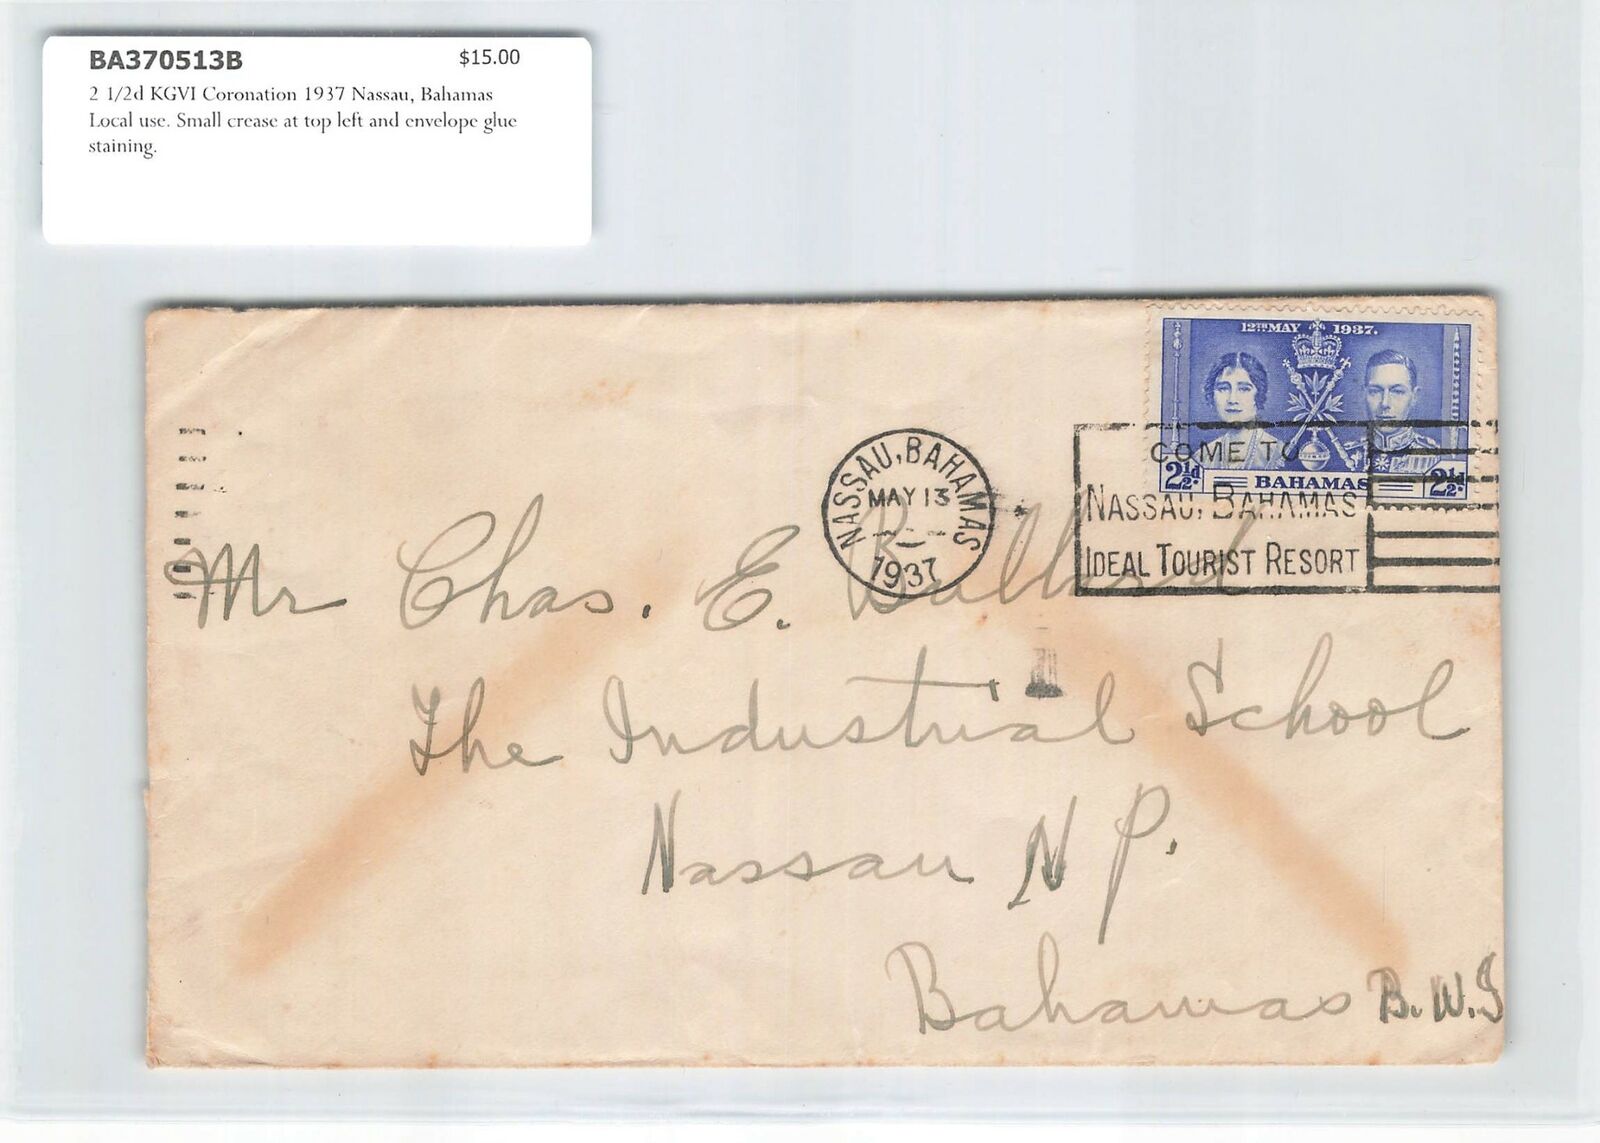 BA370513B $15.00
2 1/2d KGVI Coronation 1937 Nassau, Bahamas
Local use. Small crease at top left and envelope glue
staining.
12TH MAY 1937.
2½d. BAHAMAS 2½d.
NASSAU, BAHAMAS
MAY 13
1937
COME TO
NASSAU, BAHAMAS
IDEAL TOURIST RESORT
Mr Chas. E. Bullard
The Industrial School
Nassau N P.
Bahamas B.W.I